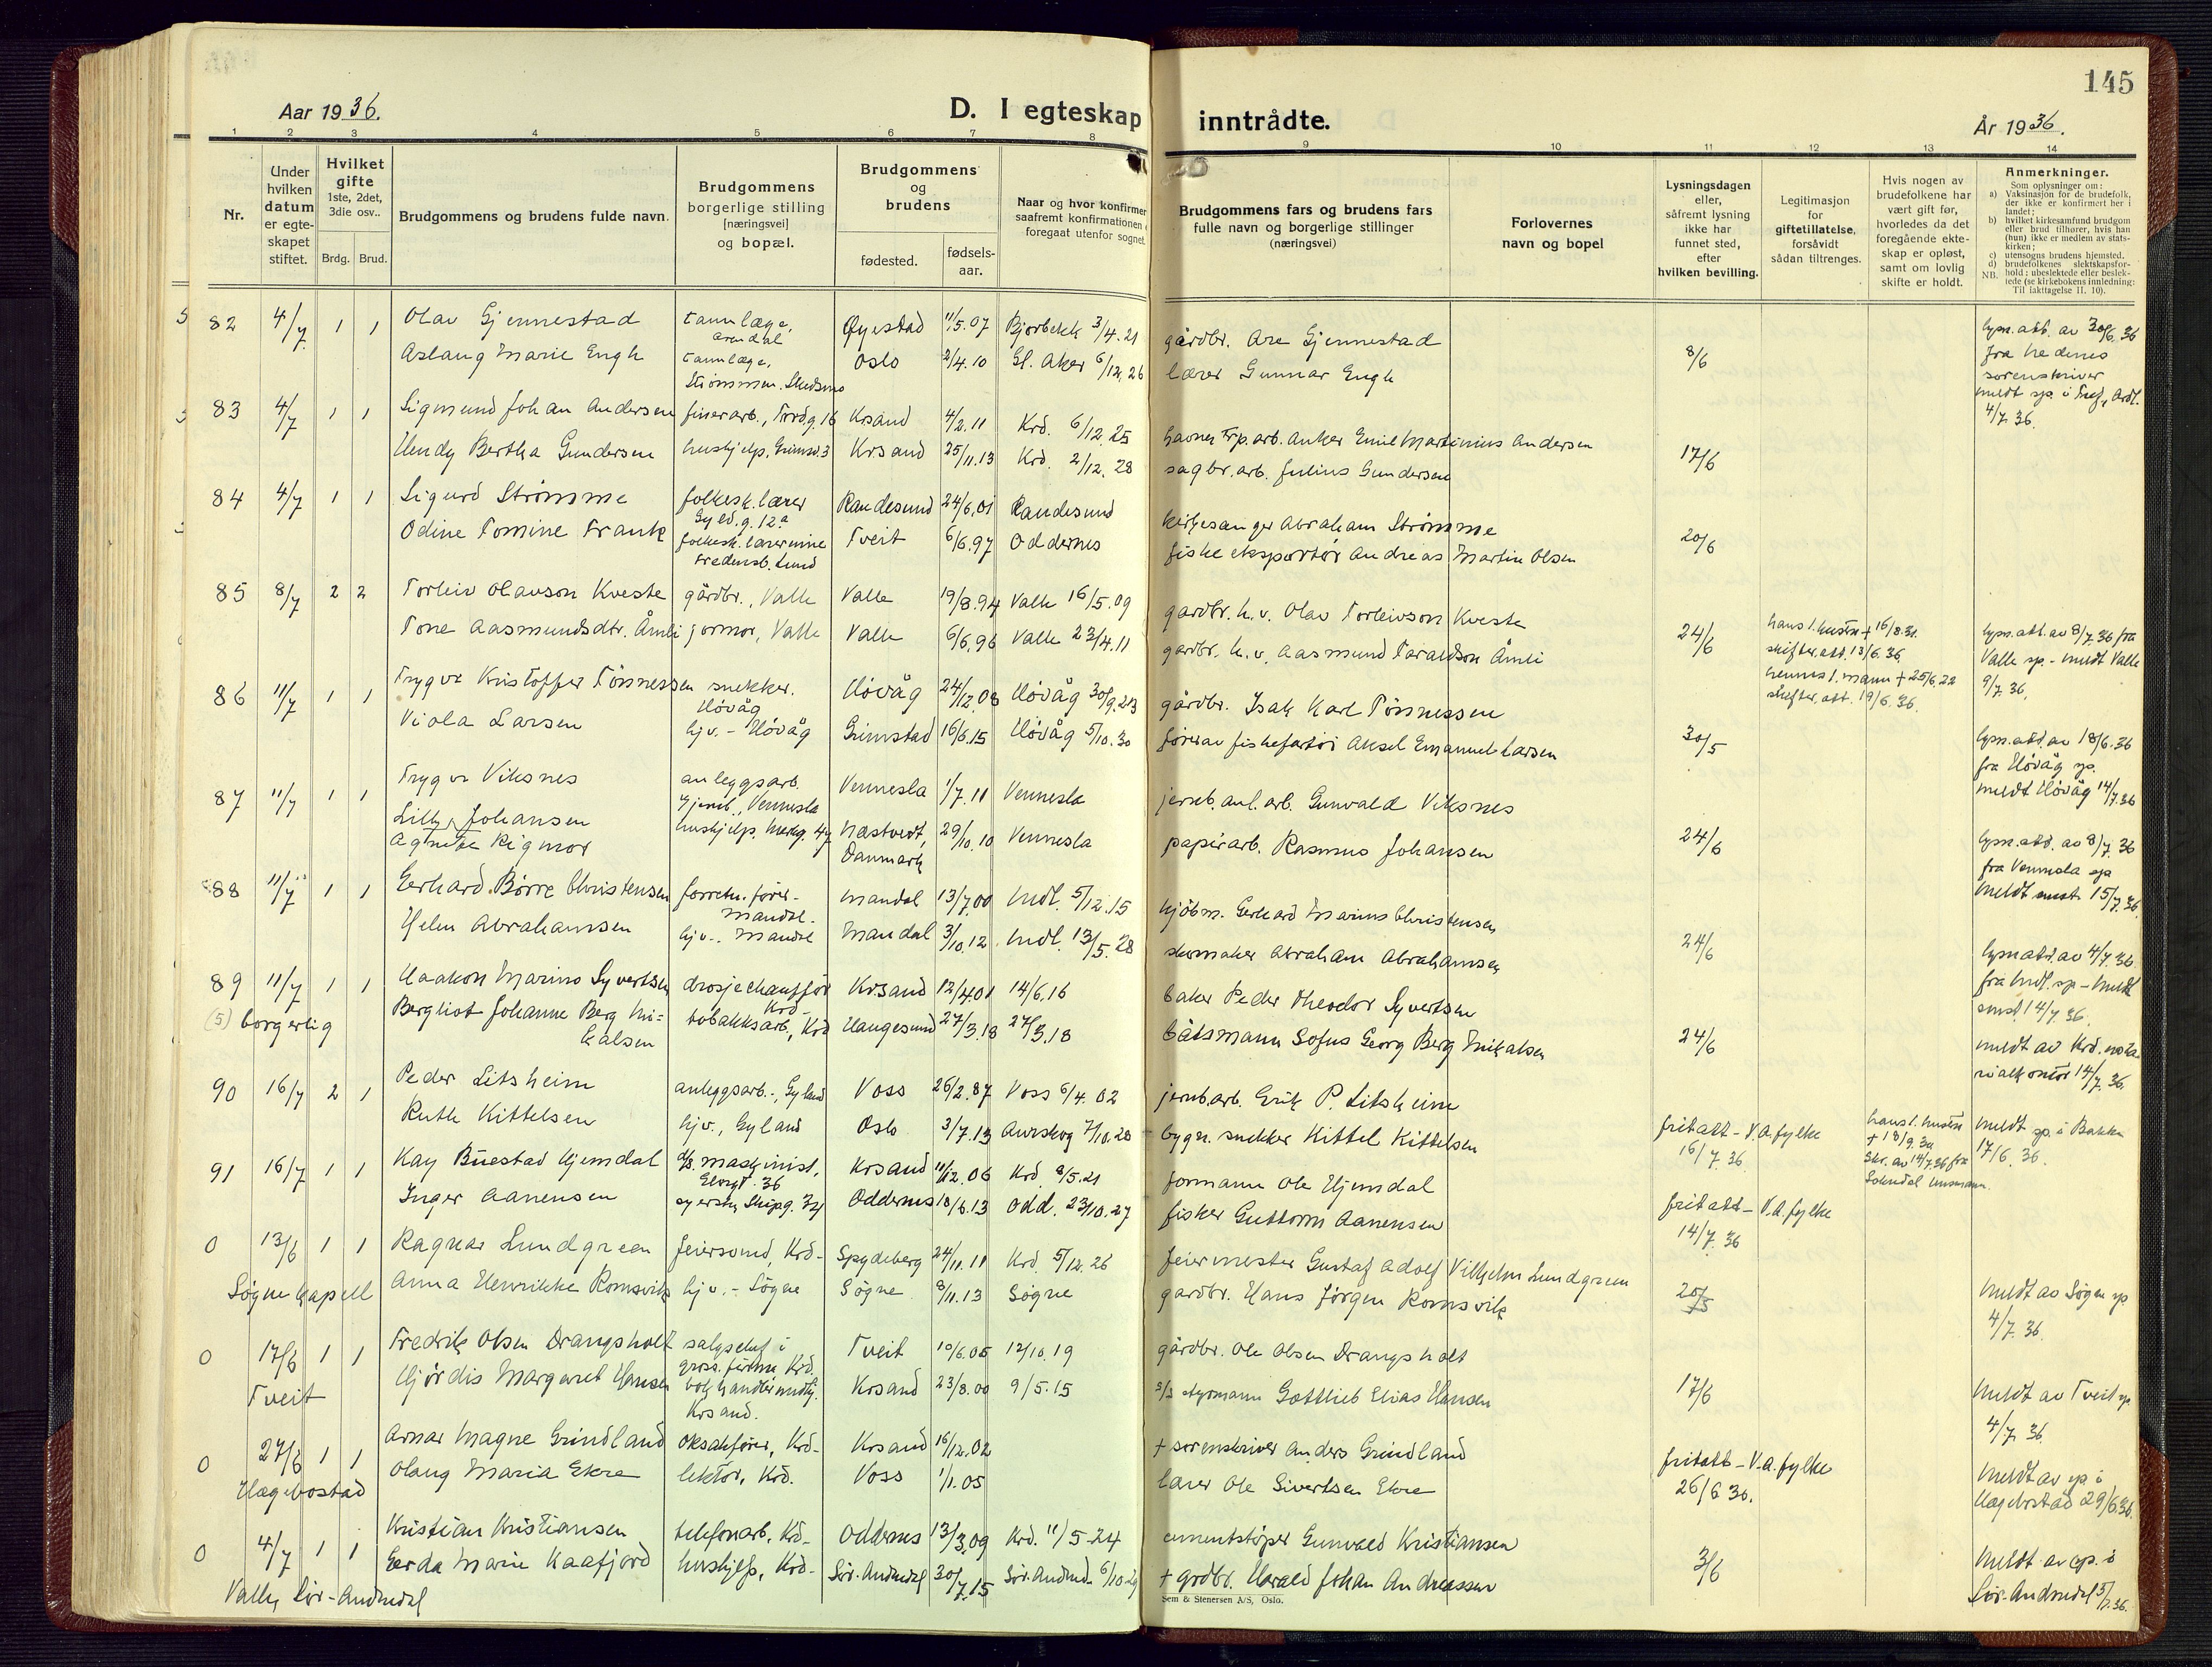 145
Aar 1936.
D. I egteskap inntrådte.
År 1936.
1 2 3 4 5 6 7 8 9 10 11 12 13 14
Nr.
Under hvilken datum er egteskapet stiftet.
Hvilket gifte 1ste, 2det, 3die osv..
Brdg. Brud.
Brudgommens og brudens fulde navn.
Brudgommens borgerlige stilling [næringsvei] og bopæl.
Brudgommens og brudens
fødested.
fødsels-aar.
Naar og hvor konfirmer
saafremt konfirmationen
foregaat utenfor sognet
Brudgommens fars og brudens fars
fulle navn og borgerlige stillinger
(næringsvei)
Forlovernes
navn og bopel
Lysningsdagen
eller,
såfremt lysning
ikke har
funnet sted,
efter
hvilken bevilling.
Legitimasjon
for
giftetillatelse,
forsåvidt
sådan tiltrenges.
Hvis nogen av
brudefolkene har
vært gift før,
hvorledes da det
foregående ekte-
skap er opløst,
samt om lovlig
skifte er holdt.
Anmerkninger.
Som oplysninger om:
a) Vaksinasjon for de brudefolk, der ikke er konfirmert her i landet;
b) hvilket kirkesamfund brudgom eller brud tilhører, hvis han (hun) ikke er medlem av statskirken;
c) utensogns brudens hjemsted.
d) brudefolkenes slektskapsforhold: ubeslektede eller beslektede (se kirkebokens innledning:
NB. Til iakttagelse II. 10).
82 4/7 1 1 Olav Gjennestad tannlæge, Arendal Øyestad 11/5.07 Bjorbekk 3/4.21 gårdbr. Are Gjennestad
Aslaug Marie Engh tannlæge, Strømmen. Skedsmo Oslo 2/4.10 Gl. Aker 6/12.26 lærer Gunnar Engh 8/6
lysn.att. av 30/6.36
fra Nedenes
sorenskriver
meldt sp. i Tref., Ardl.
4/7.36.
83 4/7 1 1 Sigmund Johan Andersen finerarb., Tordg. 16 Krsand 4/2.11 Krd. 6/12.25 havner Frp.arb. Anker Emil Martinius Andersen
Hendy Bertha Gundersen hushjelp, Grimsd.3 Krsand 25/11.13 Krd. 2/12.28 sagbr.arb. Julius Gundersen 17/6
84 4/7 1 1 Sigurd Strømme folkesk.lærer Gyld.g. 12a Randesund 24/6.01 Randesund kirkesanger Abraham Strømme
Odine Tomine Frank folkesk.lærerinne Fredensb. Lund Tveit 6/6.97 Oddernes fiskeeksportør Andreas Martin Olsen 20/6
85 8/7 2 2 Torleiv Olavson Kveste gårdbr., Valle Valle 19/8.94 Valle 16/5.09 gardbr. h.v. Olav Torleivson Kveste
Tone Aasmundsdtr. Åmli jormor, Valle Valle 6/6.96 Valle 23/4.11 gardbr. h.v. Aasmund Taraldson Åmli 24/6
hans 1. hustru + 16/8.31.
skifter.att. 13/6.36.
hennes 1. mann + 25/6.22
skifter.att. 19/6.36.
lysn.att. av 8/7.36 fra
Valle sp. - meldt Valle
9/7.36.
86 11/7 1 1 Trygve Kristoffer Tønnessen snekker. Høvåg Høvåg 24/12.08 Høvåg 30/9.23 gårdbr. Isak Karl Tønnessen
Viola Larsen hjv. - Høvåg Grimstad 16/6.15 Høvåg 5/10.30 fører av fiskefartøi Aksel Emanuel Larsen 30/5
lysn.att. av 18/6.36
fra Høvåg sp.
meldt Høvåg 14/7.36
87 11/7 1 1 Trygve Viksnes anleggsarb. Gjerub., Vennesla Vennesla 1/7.11 Vennesla jernb.anl.arb. Gunvald Viksnes
Lilly Johansen hushjelp, Markg. 47 Næstvedt, Danmark 29/10.10 Vennesla papirarb. Rasmus Johansen 24/6
Agnete Rigmor
lysn.att. av 8/7.36
fra Vennesla sp
meldt smst. 15/7.36.
88 11/7 1 1 Gerhard Børre Christensen forretn.fører - Mandal. Mandal 13/7.00 Mdl. 5/12.15 kjøbm. Gerhard Marius Christensen
Helen Abrahamsen hjv. - Mandal Mandal 3/10.12 Mdl. 13/5.28 skomaker Abraham Abrahamsen 24/6
lysn.att. av 4/7.36
fra Mdl. sp - meldt
smst. 14/7.36.
89 11/7 1 1 Haakon Marino Syvertsen drosjechauffør Krd. Krsand 12/4.01 14/6.16 baker Peder Theodor Syvertsen
(5) borgerlig Bergliot Johanne Berg Mi=kalsen tobakksarb., Krd Haugesund 27/3.18 27/3.18 båtsmann Sofus Georg Berg Mikalsen 24/6
meldt av Krd. nota
rialkontor 14/7.36.
90 16/7 2 1 Peder Litsheim anleggsarb., Gyland Voss 26/2.87 Voss 6/4.02 jernb.arb. Erik P. Litsheim
Ruth Kittelsen hjv., Gyland Oslo 3/7.13 Aurskog 7/10.28 bygn.snekker Kittel Kittelsen
fritatt - V.A. fylke
16/7.36
hans 1. hustru
+ 18/9.34
Skr. av 14/7.36 fra
Sokndal lensmann.
meldt sp. i Bakke
17/6.36.
91 16/7 1 1 Kay Buestad Hjemdal d/s. maskinist, Elvegt. 36 Krsand 11/12.06 Krd. 8/5.21 formann Ole Hjemdal
Inger Aanensen syerske, Skipg. 34 Oddernes 18/6.13 Odd. 23/10.27 fisker Guttorm Aanensen
fritatt - V.A. fylke
14/7.36
0 13/6 1 1 Ragnar Lundgreen feiersvend, Krd - Spydeberg 24/11.11 Krd. 5/12.26 feiermester Gustaf Adolf Vilhelm Lundgreen
Søgne kapell Anna Henrikke Romsvik hjv. - Søgne Søgne 8/11.13 Søgne gardbr. Hans Jørgen Romsvik 20/5
Meldt av Søgne sp
4/7.36.
0 17/6 1 1 Fredrik Olsen Drangsholt salgschef i gross. firma Krd. Tveit 10/6.05 12/10.19 gårdbr. Ole Olsen Drangsholt
Tveit Hjørdis Margaret Hansen bokhandlermedhj. Krsand. Krsand 23/8.00 9/5.15 s/s styrmann Gottlieb Elias Hansen 17/6
Meldt av Tveit sp
4/7.36
0 27/6 1 1 Arnar Magne Grindland o.r.sakfører, Krd - Krsand 16/12.02 + sorenskriver Anders Grindland
Hægebostad Olaug Maria Ekre lektor, Krd. Voss 1/1.05 lærer Ole Sivertsen Ekre
fritatt - V.A. fylke
26/6 36.
Meldt av sp i
Hægebostad 29/6 36.
0 4/7 1 1 Kristian Kristiansen telefonarb., Krd - Oddernes 13/3.09 Krd. 11/5-24 cementstøper Gunvald Kristiansen
Gerda Marie Kaafjord hushjelp, Krd - Sør-Audnedal 30/7.15 Sør.Audned. 6/10-29 + grdbr. Harald Johan Andreassen 3/6
Valle, Sør-Audnedal
Meldt av sp. i
Sør-Audnedal 5/7.36.
Sem & Stenersen A/S, Oslo.